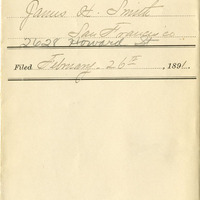 James H. Smith
San Francisco
2628 Howard St
Filed February 26th, 1891.